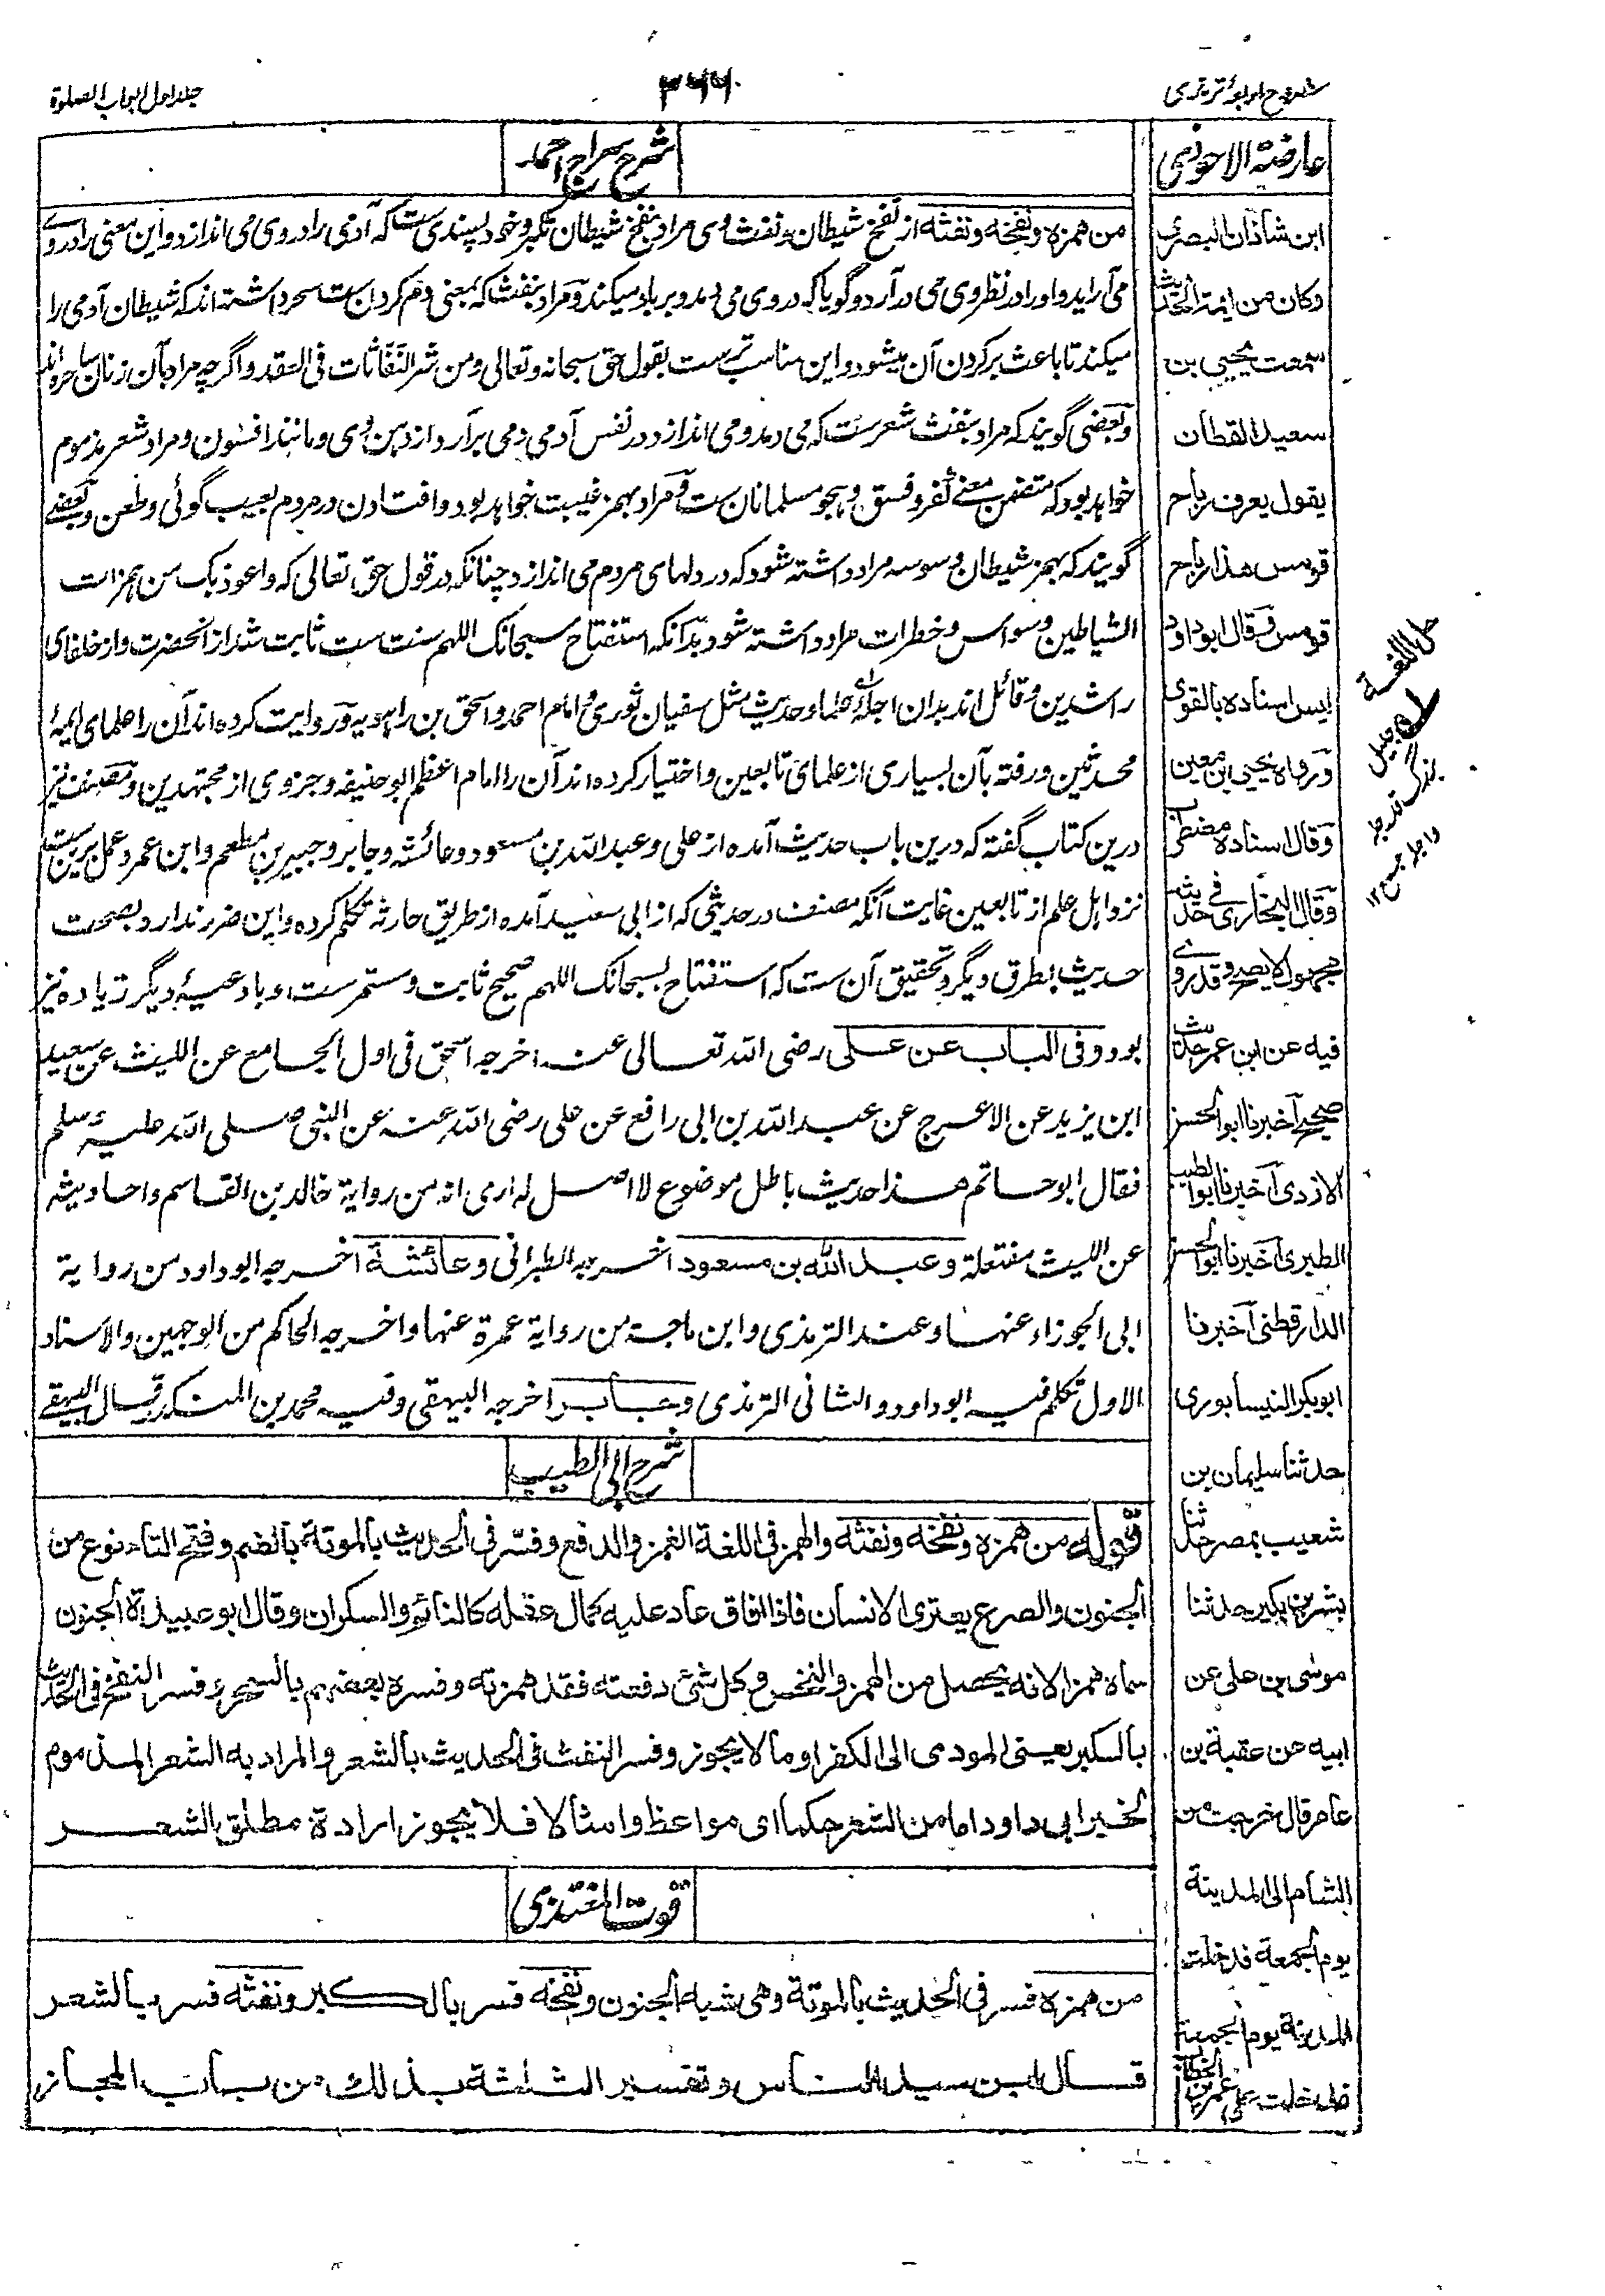 شروح اربعۂ ترمذی
٣٦٦
جلد اول ابواب الصلوة
عارضة الاحوذی
ابن شاذان البصری
وكان من ايمة الحديث
سمعت يحيى بن
سعيد القطان
يقول يعرف رباح
قومس هذا رباح
قومس وقال ابو داود
ليس اسناده بالقوی
ورواه يحيى بن معين
وقال اسناده مضطرب
وقال البخاری فی حديثه
مجهول لا يصح وقد روی
فيه عن ابن عمر حديث
صحيح اخبرنا ابو الحسن
الازدی اخبرنا ابو الطيب
الطبری اخبرنا ابو الحسن
الدارقطنی اخبرنا
ابو بكر النيسابوری
حدثنا سليمان بن
شعيب بمصر حدثنا
بشر بن بكير حدثنا
موسى بن علی عن
ابيه عن عقبة بن
عامر قال خرجت من
الشام الى المدينة
يوم الجمعة فدخلت
المدينة يوم الجمعة
فدخلت على عمر بن الخطاب
شرح سراج احمد
من همزه ونفخه ونفثه از نفخ شیطان و نفث وی مراد بنفخ شیطان تکبر و خود پسندی ست که آدمی را در وی می اندازد و این معنی را در وے
می آراید و او را در نظر وی می در آرد و گویا که در وی می دمد و بر باد میکند و مراد بنفث که بمعنی دم کردن ست سحر داشته اند که شیطان آدمی را
میکند تا باعث بر کردن آن میشود و این مناسب ترست بقول حق سبحانه وتعالی ومن شر النفاثات فی العقد و اگرچه مراد بآن زنان ساحره اند
و بعضی گویند که مراد بنفث شعرست که می دمد و می اندازد در نفس آدمی و می برآرد از دهن وی و مانند افسون و مراد شعر مذموم
خواهد بود که متضمن معنے کفر و فسق و هجو مسلمانان ست و مراد بهمز غیبت خواهد بود و افتادن در مردم بعیب گوئی و طعن و بعضے
گویند که بهمز شیطان وسوسه مراد داشته شود که در دلهای مردم می اندازد چنانکه در قول حق تعالی که واعوذ بک من همزات
الشیاطین وسواس و خطرات مراد داشته شود بدانکه استفتاح سبحانک اللهم سنت ست ثابت شد از آنحضرت و از خلفای
راشدین و قائل اند بدان اجلۂ علماء حدیث مثل سفیان ثوری و امام احمد و اسحق بن راهویه و روایت کرده اند آن را علمای ایمۂ
محدثین و رفته بآن بسیاری از علمای تابعین و اختیار کرده اند آن را امام اعظم ابو حنیفه و جزوی از مجتهدین و مصنف نیز
درین کتاب گفته که درین باب حدیث آمده از علی و عبد الله بن مسعود و عائشه و جابر و جبیر بن مطعم و ابن عمر و عمل برین ست
نزد اهل علم از تابعین غایت آنکه مصنف در حدیثی که از ابی سعید آمده از طریق حارثه تکلم کرده و این ضرر ندارد بصحت
حدیث بطرق دیگر و تحقیق آن ست که استفتاح بسبحانک اللهم صحیح ثابت و مستمر ست و بادعیۂ دیگر زیاده نیز
بود وفی الباب عن علی رضی الله تعالی عنه اخرجه اسحق فی اول الجامع عن اللیث عن سعید
ابن یزید عن الاعرج عن عبد الله بن ابی رافع عن علی رضی الله عنه عن النبی صلی الله علیه وسلم
فقال ابو حاتم هذا حدیث باطل موضوع لا اصل له اری انه من روایة خالد بن القاسم واحادیثه
عن اللیث مفتعلة وعبد الله بن مسعود اخرجه الطبرانی وعائشة اخرجه ابو داود من روایة
ابی الجوزاء عنها وعند الترمذی وابن ماجة من روایة عمرة عنها واخرجه الحاکم من الوجهین والاسناد
الاول تکلم فیه ابو داود والثانی الترمذی وجابر اخرجه البیهقی وفیه محمد بن المنکدر قال البیهقے
شرح ابی الطیب
قوله من همزه ونفخه ونفثه والهمز فی اللغة الغمز والدفع وفسر فی الحدیث بالموتة بالضم وفتح التاء نوع من
الجنون والصرع یعتری الانسان فاذا افاق عاد علیه کمال عقله کالنائم والسکران وقال ابو عبیدة الجنون
سماه همزا لانه یحصل من الهمز والنخس وکل شئ دفعته فقد همزته وفسره بعضهم بالسحر وفسر النفخ فی الحدیث
بالکبر یعنی المودی الی الکفر او ما لا یجوز وفسر النفث فی الحدیث بالشعر والمراد به الشعر المذموم
لخبر ابی داود اما من الشعر حکما ای مواعظ وامثالا فلا یجوز ارادة مطلق الشعر
قوت المغتذی
من همزه فسر فی الحدیث بالموتة وهی شبه الجنون ونفخه فسر بالکبر ونفثه فسر بالشعر
قال ابن سید الناس وتفسیر الثلثة بذلك من باب المجاز
حل اللغة
جلیل
بزرگ قدر
١٢